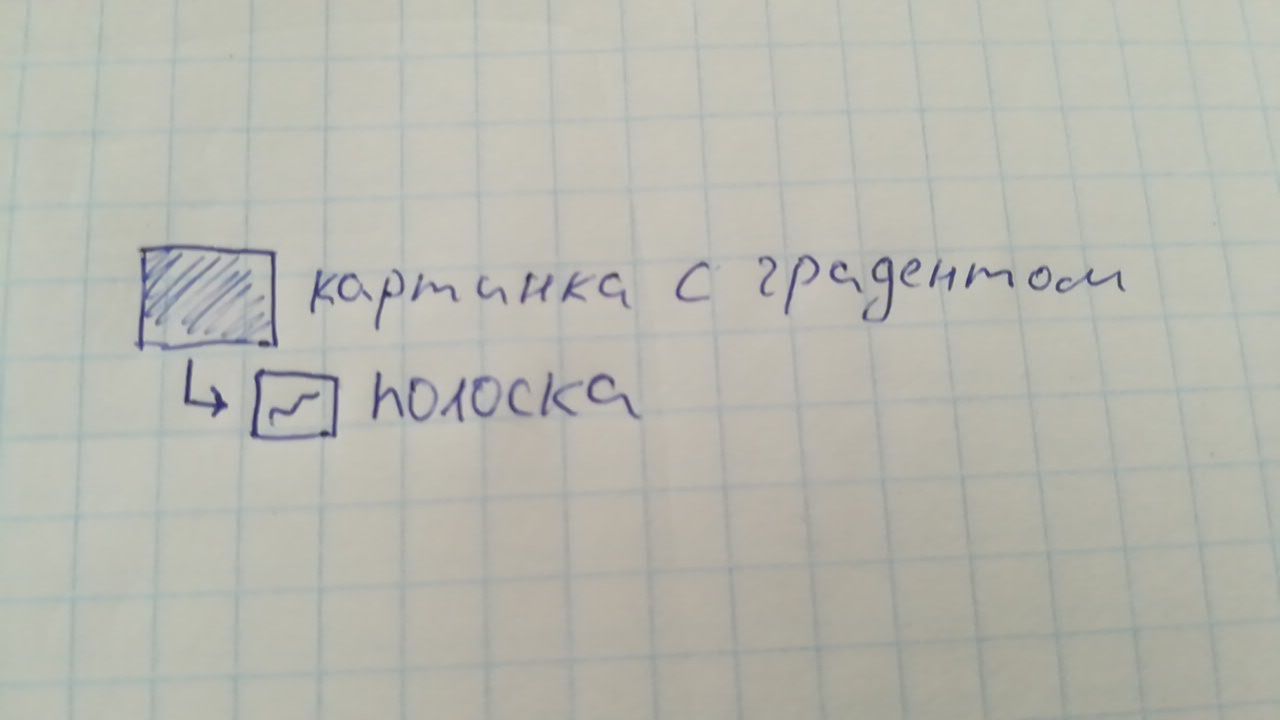 картинка с градентом
полоска